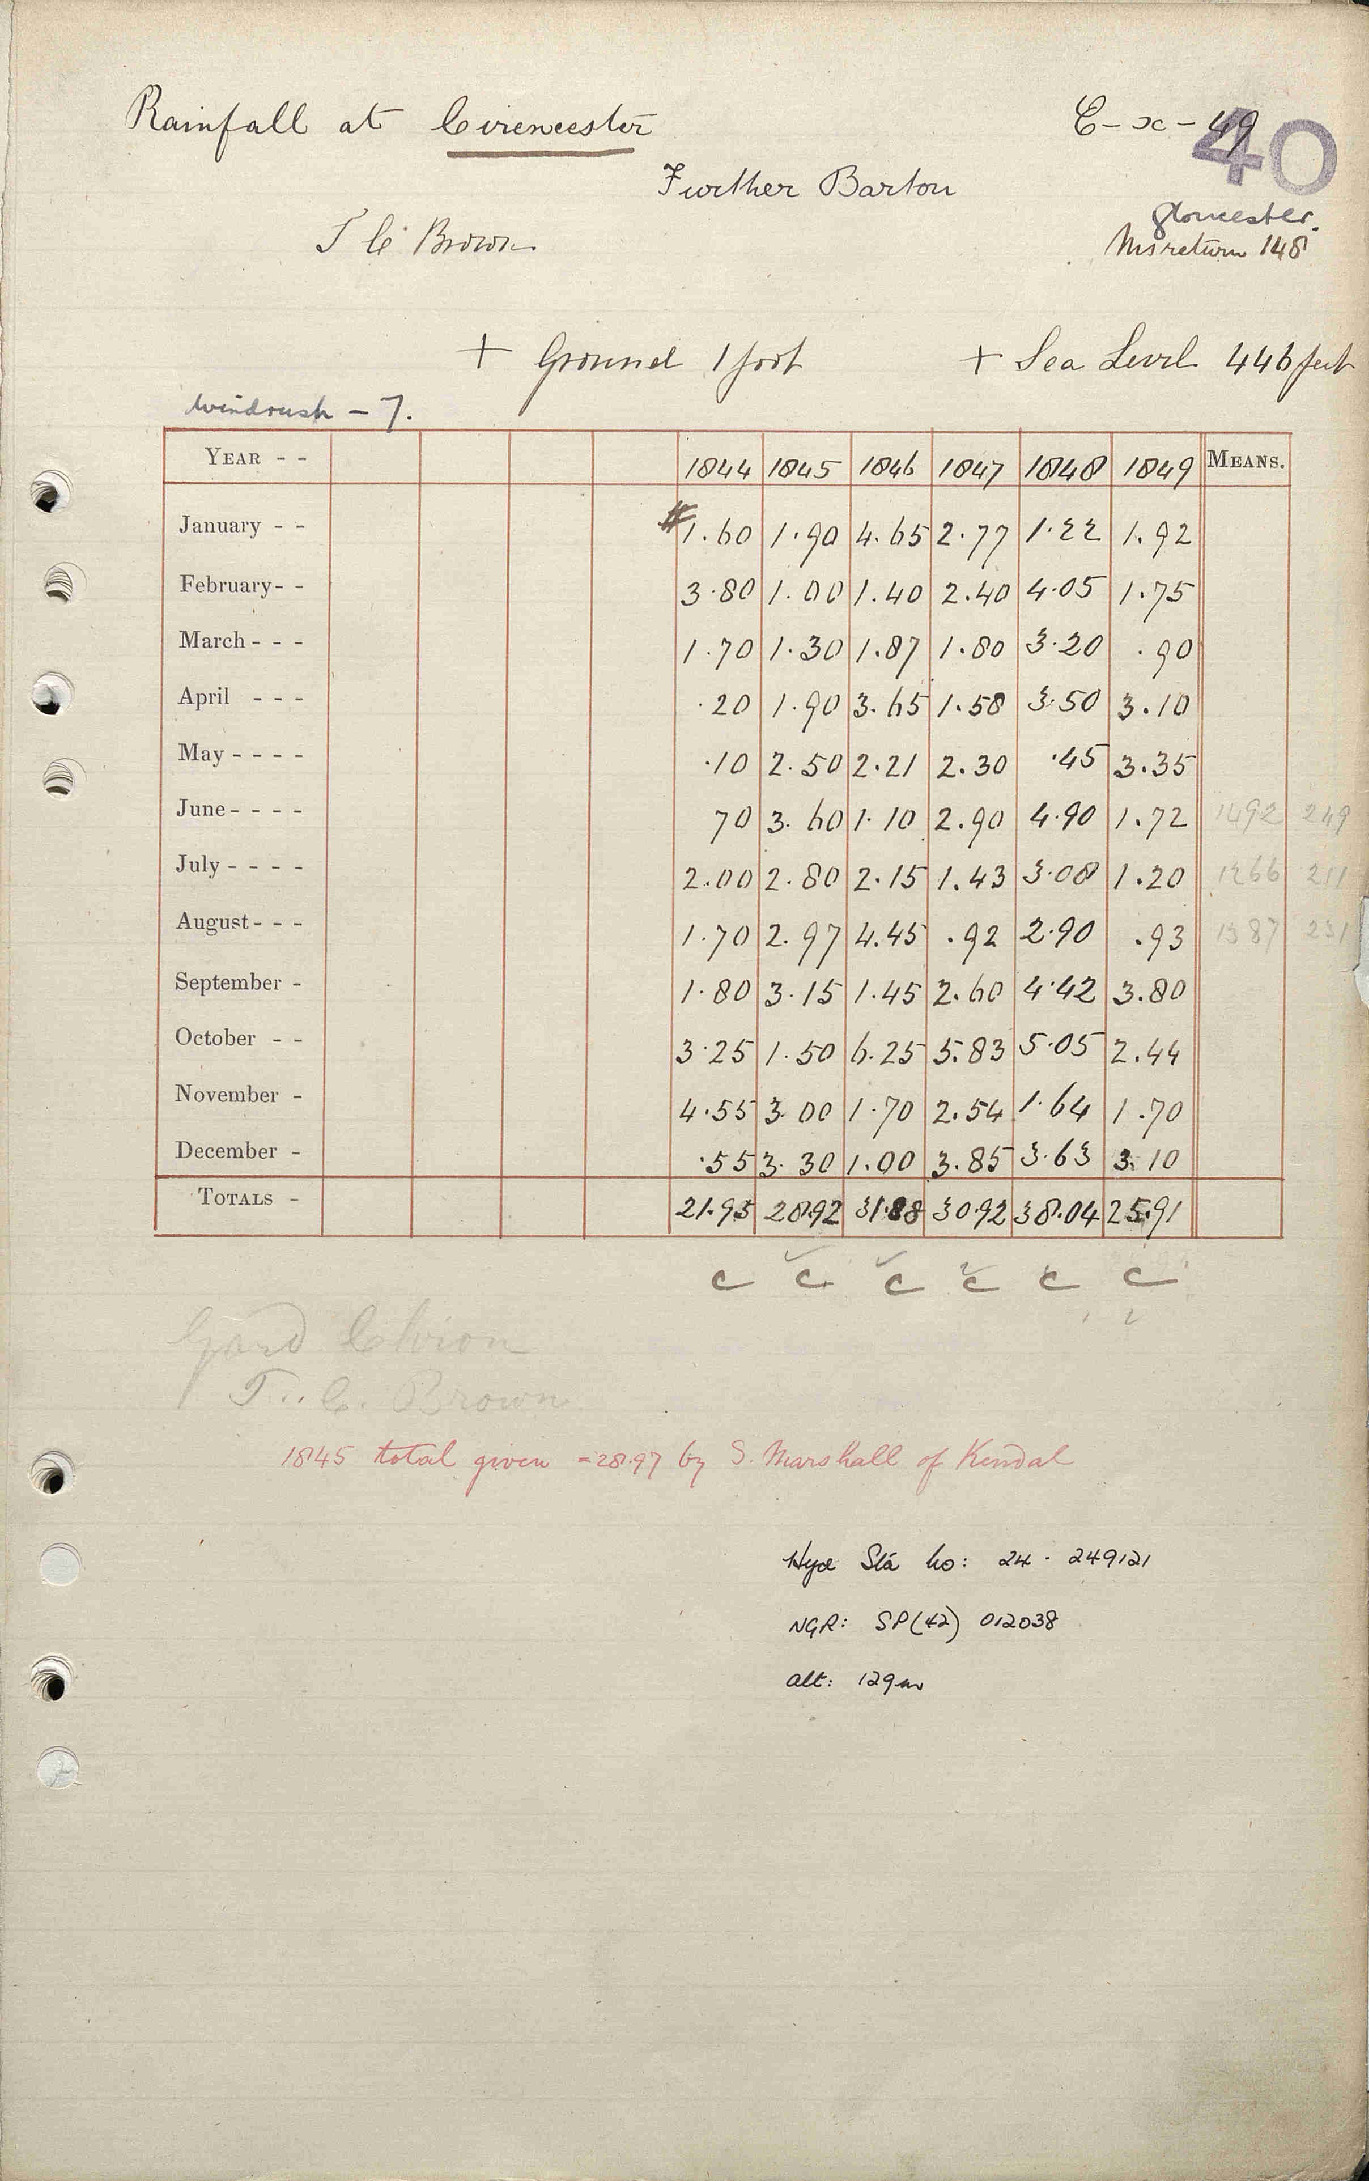 Rainfall at Cirencester
C-x-49
40
Further Barton
Gloucester.
T C Brown
Ms return 148
+ Ground 1 foot + Sea Level 446 feet
Windrush - 7.
YEAR - - 1844 1845 1846 1847 1848 1849 MEANS.
January - - 1.60 1.90 4.65 2.77 1.22 1.92
February - - 3.80 1.00 1.40 2.40 4.05 1.75
March - - - 1.70 1.30 1.87 1.80 3.20 .90
April - - - .20 1.90 3.65 1.58 3.50 3.10
May - - - - .10 2.50 2.21 2.30 .45 3.35
June - - - - 70 3.60 1.10 2.90 4.90 1.72 1492 249
July - - - - 2.00 2.80 2.15 1.43 3.08 1.20 1266 211
August - - - 1.70 2.97 4.45 .92 2.90 .93 1387 231
September - 1.80 3.15 1.45 2.60 4.42 3.80
October - - 3.25 1.50 6.25 5.83 5.05 2.44
November - 4.55 3.00 1.70 2.54 1.64 1.70
December - .55 3.30 1.00 3.85 3.63 3.10
TOTALS - 21.95 28.92 31.88 30.92 38.04 25.91
C C C C C C
T.. C. Brown
1845 total given = 28.97 by S. Marshall of Kendal
Hyd Sta No: 24 . 249121
NGR: SP (42) 012038
Alt: 129m